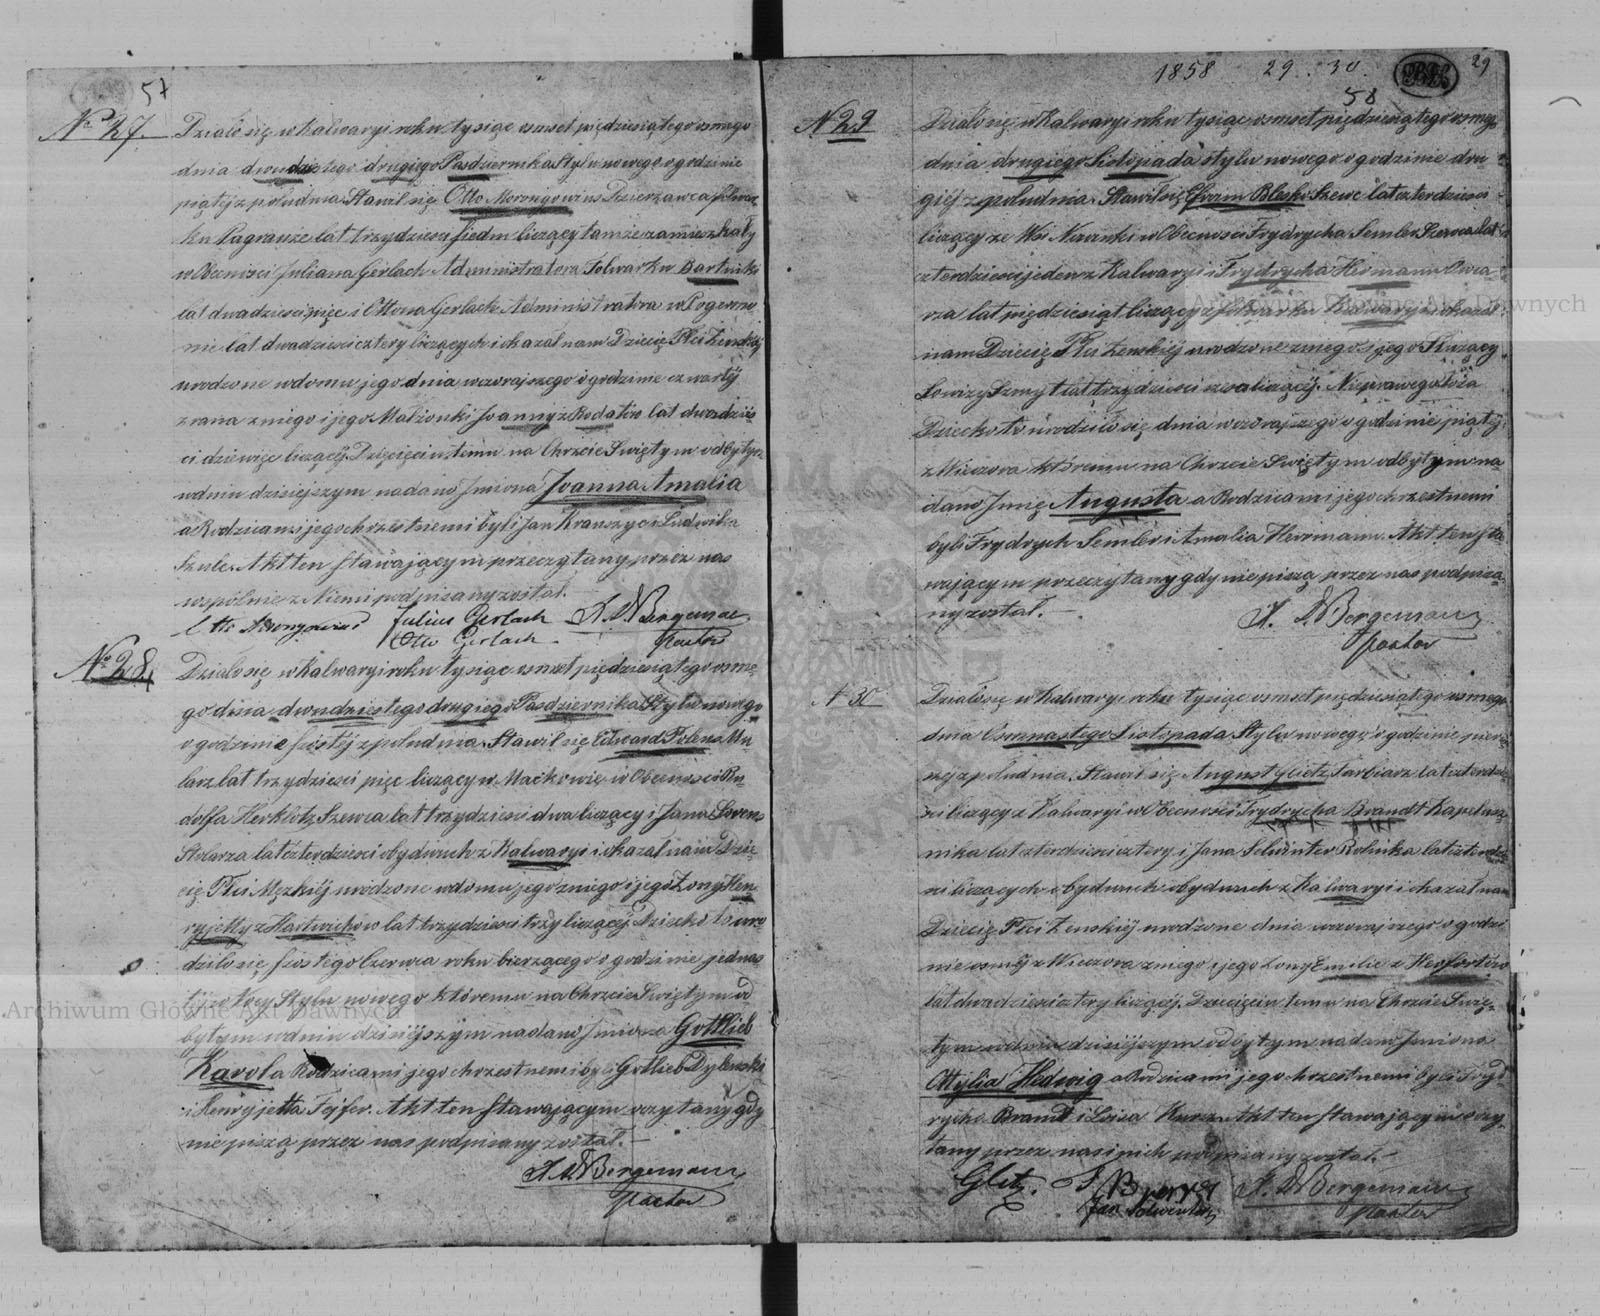 57
No 27.
Działo się w Kalwaryi roku tysiąc osmset pięćdziesiątego osmego
dnia dwudziestego drugiego Pasdziernika Stylu nowego o godzinie
piątej z południa. Stawił się Otto Morongowius Dzierzawca folwar
ku Pagrauże lat trzydzieści siedm liczący tamże zamieszkały
w Obecności Juliana Gerlach Administratora Folwarku Bartniki
lat dwadzieścia pięć i Ottona Gerlach Administratora w Pogermo
nie lat dwadzieścia cztery liczących i okazał nam Dziecię Płci Żenskiej
urodzone w domu jego dnia wczorajszego o godzinie czwartej
z rana z niego i jego Małżonki Joanny z Rodatów lat dwadzieś
ci dziewięć liczącej. Dziecięciu temu na Chrzcie Świętym odbytym
w dniu dzisiejszym nadano Imiona Joanna Amalia
a Rodzicami jego chrzestnemi byli Jan Kranszyc i Ludwika
Szulc. Akt ten Stawającym przeczytany przez nas
wspólnie z Niemi podpisany został.
Otto Morongowius Julius Gerlach A. D. Bergemann
Otto Gerlach Pastor
No 28.
Działo się w Kalwaryi roku tysiąc osmset pięćdziesiątego osme
go dnia dwudziestego drugiego Pasdziernika Stylu nowego
o godzinie szóstej z południa. Stawił się Edward Polens Mu
larz lat trzydzieści pięć liczący w Maćkowie w Obecności Ru
dolfa Herklotz Szewca lat trzydzieści dwa liczący i Jana Lorenz
Stolarza lat czterdzieści obydwuch z Kalwaryi i okazał nam Dzie
cię Płci Męzkiej urodzone w domu jego z niego i jego Żony Hen
ryjetty z Hartwichów lat trzydzieści trzy liczącej. Dziecko to uro
dziło się szóstego Czerwca roku bierzącego o godzinie jednas
tej w nocy Stylu nowego któremu na Chrzcie Świętym od
bytym w dniu dzisiejszym nadano Imiona Gottlieb
Karol a Rodzicami jego chrzestnemi byli Gotlieb Dylenski
i Henryjetta Fejfer. Akt ten Stawającym czytany gdy
nie piszą przez nas podpisany został.
A. D. Bergemann
Pastor
1858 29. 30. 29
58
N 29
Działo się w Kalwaryi roku tysiąc osmset pięćdziesiątego osmego
dnia drugiego Listopada stylu nowego o godzinie dru
giej z południa. Stawił się Efraim Blesko Szewc lat czterdzieści
liczący ze Wsi Nirinki w Obecności Frydrycha Semler Szewca lat
czterdzieści jeden z Kalwaryi i Frydrycha Hermann Owca
rza lat pięćdziesiąt liczący z folwarku Kalwaryi i okazał
nam Dziecię Płci Żenskiej urodzone z niego i jego Służący
Lowizy Szmyt lat trzydzieści dwa liczącej. Nieprawego Łoża
Dziecko to urodziło się dnia wczorajszego o godzinie piątej
z Wieczora któremu na Chrzcie Świętym odbytym na
dano Imię Augusta a Rodzicami jego chrzestnemi
byli Frydrych Semler i Amalia Herrmann. Akt ten Sta
wającym przeczytany gdy nie piszą przez nas podpisa
ny został.
A. D. Bergemann
Pastor
N 30
Działo się w Kalwaryi roku tysiąc osmset pięćdziesiątego osmego
dnia Osmnastego Listopada Stylu nowego o godzinie pierw
szej z południa. Stawił się August Glietz Farbiarz lat czterdzie
ści liczący z Kalwaryi w Obecności Frydrycha Brandt Kapelusz
nika lat czterdzieści cztery i Jana Solwinter Rolnika lat czterdzie
ści liczących obydwuch obydwuch z Kalwaryi i okazał nam
Dziecię Płci Żenskiej urodzone dnia wczorajszego o godzi
nie osmej z Wieczora z niego i jego Żony Emilie z Herfortów
lat dwadzieścia cztery liczącej. Dziecięciu temu na Chrzcie Świę
tym w dniu dzisiejszym odbytym nadano Imiona
Ottylia Hedwig a Rodzicami jego chrzestnemi byli Fryd
rych Brandt i Loisa Kurz. Akt ten Stawającym czy
tany przez nas i nich podpisany został.
Glitz. A. D. Bergemann
Jan Solwinter Pastor
Archiwum Główne Akt Dawnych
Archiwum Główne Akt Dawnych